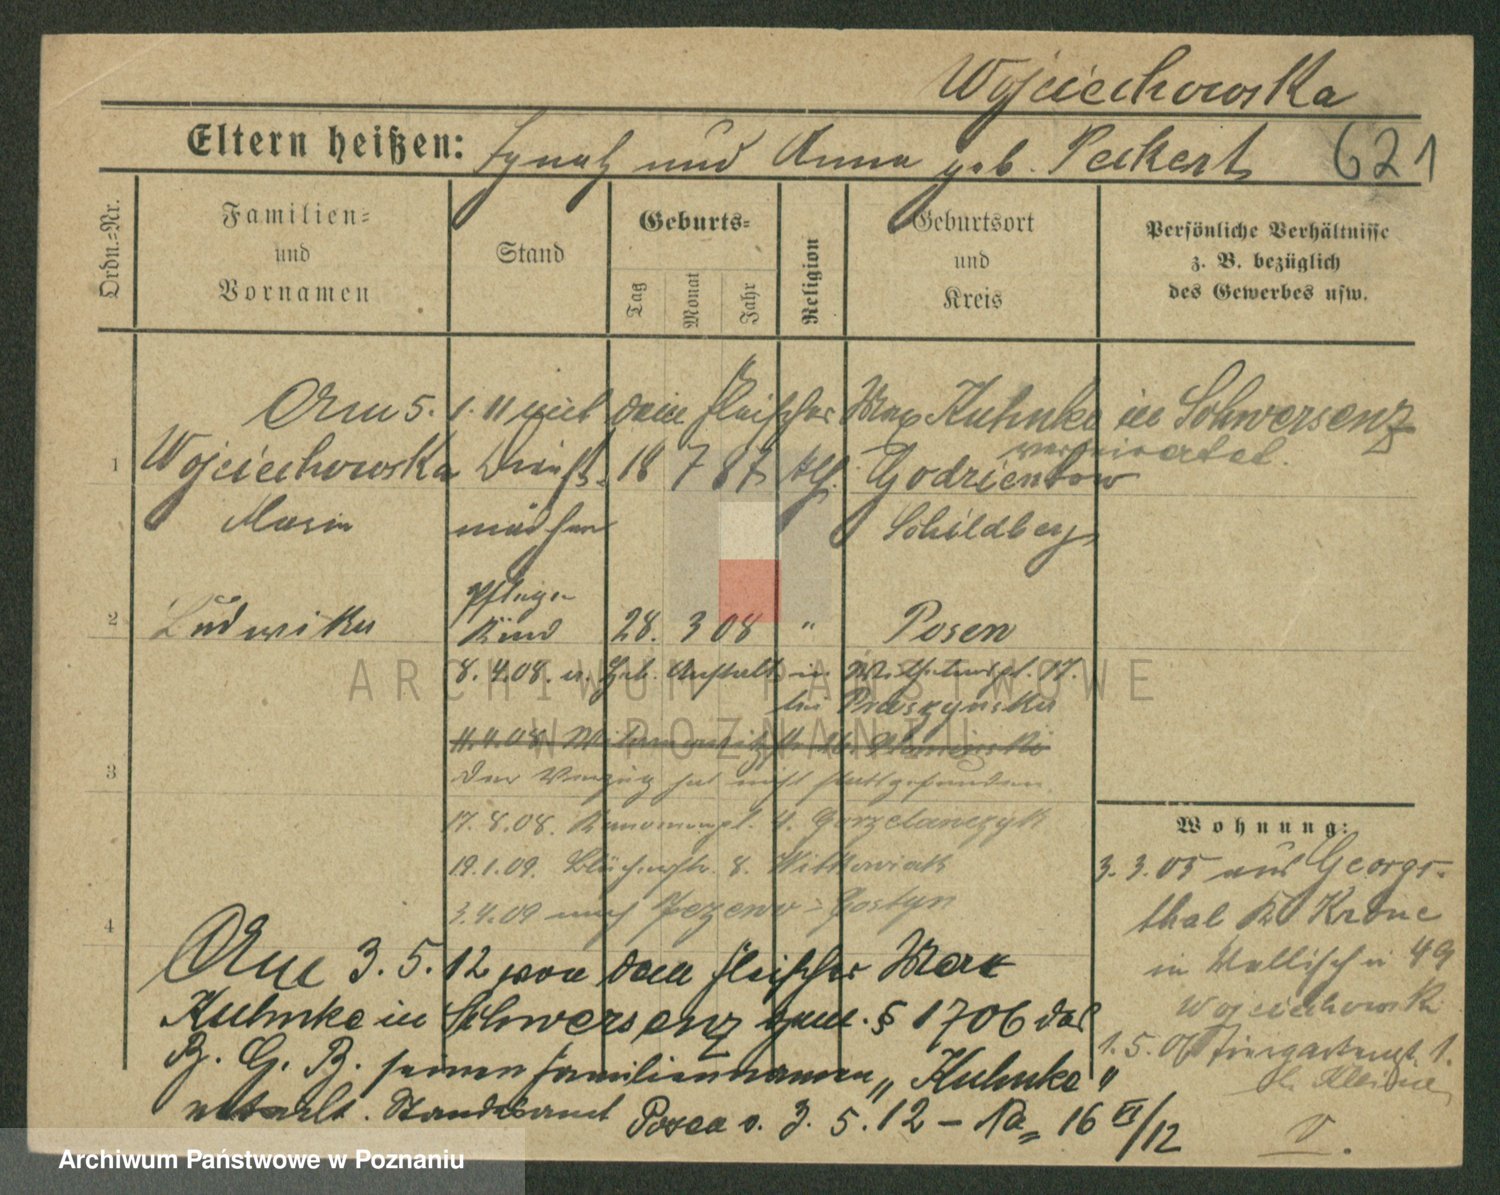 Wojciechowska
621
Eltern heißen: Ignatz und Anna geb. Peckert
Ordn.=Nr.
Familien=
und
Vornamen
Stand
Geburts=
Tag
Monat
Jahr
Religion
Geburtsort
und
Kreis
Persönliche Verhältnisse
z. B. bezüglich
des Gewerbes usw.
Am 5. 1. 11 mit dem Fleischer Max Kuhnke in Schwersenz
verheiratet.
1 Wojciechowska Dienst- 18 7 87 kth. Godzientow
Maria mädchen Schildberg
Pflege
2 Ludwika Kind 28. 3 08 " Posen
8.4.08. Geb. Anstalt in Wilhelmspl. 17.
bei Praszynska
11.4.08
der Verzug hat nicht stattgefunden.
17.8.08. 4. Gorzelanczyk
19.1.09. Blücherstr. 8. Witkowiak
3.4.09 nach Jezewo - Gostyn
3
4
Wohnung:
3.3.05 aus Georgs-
thal Kr Krone
in Wallischei 49
Wojciechowsk
1.5.06 Tiergartenst. 1.
V.
Am 3.5.12 von dem Fleischer Max
Kuhnke in Schwersenz gem. § 1706 des
B. G. B. seinen Familiennamen „Kuhnke"
erteilt. Standesamt Posen v. 3.5.12 – 16 VI/12
ARCHIWUM PAŃSTWOWE
W POZNANIU
Archiwum Państwowe w Poznaniu